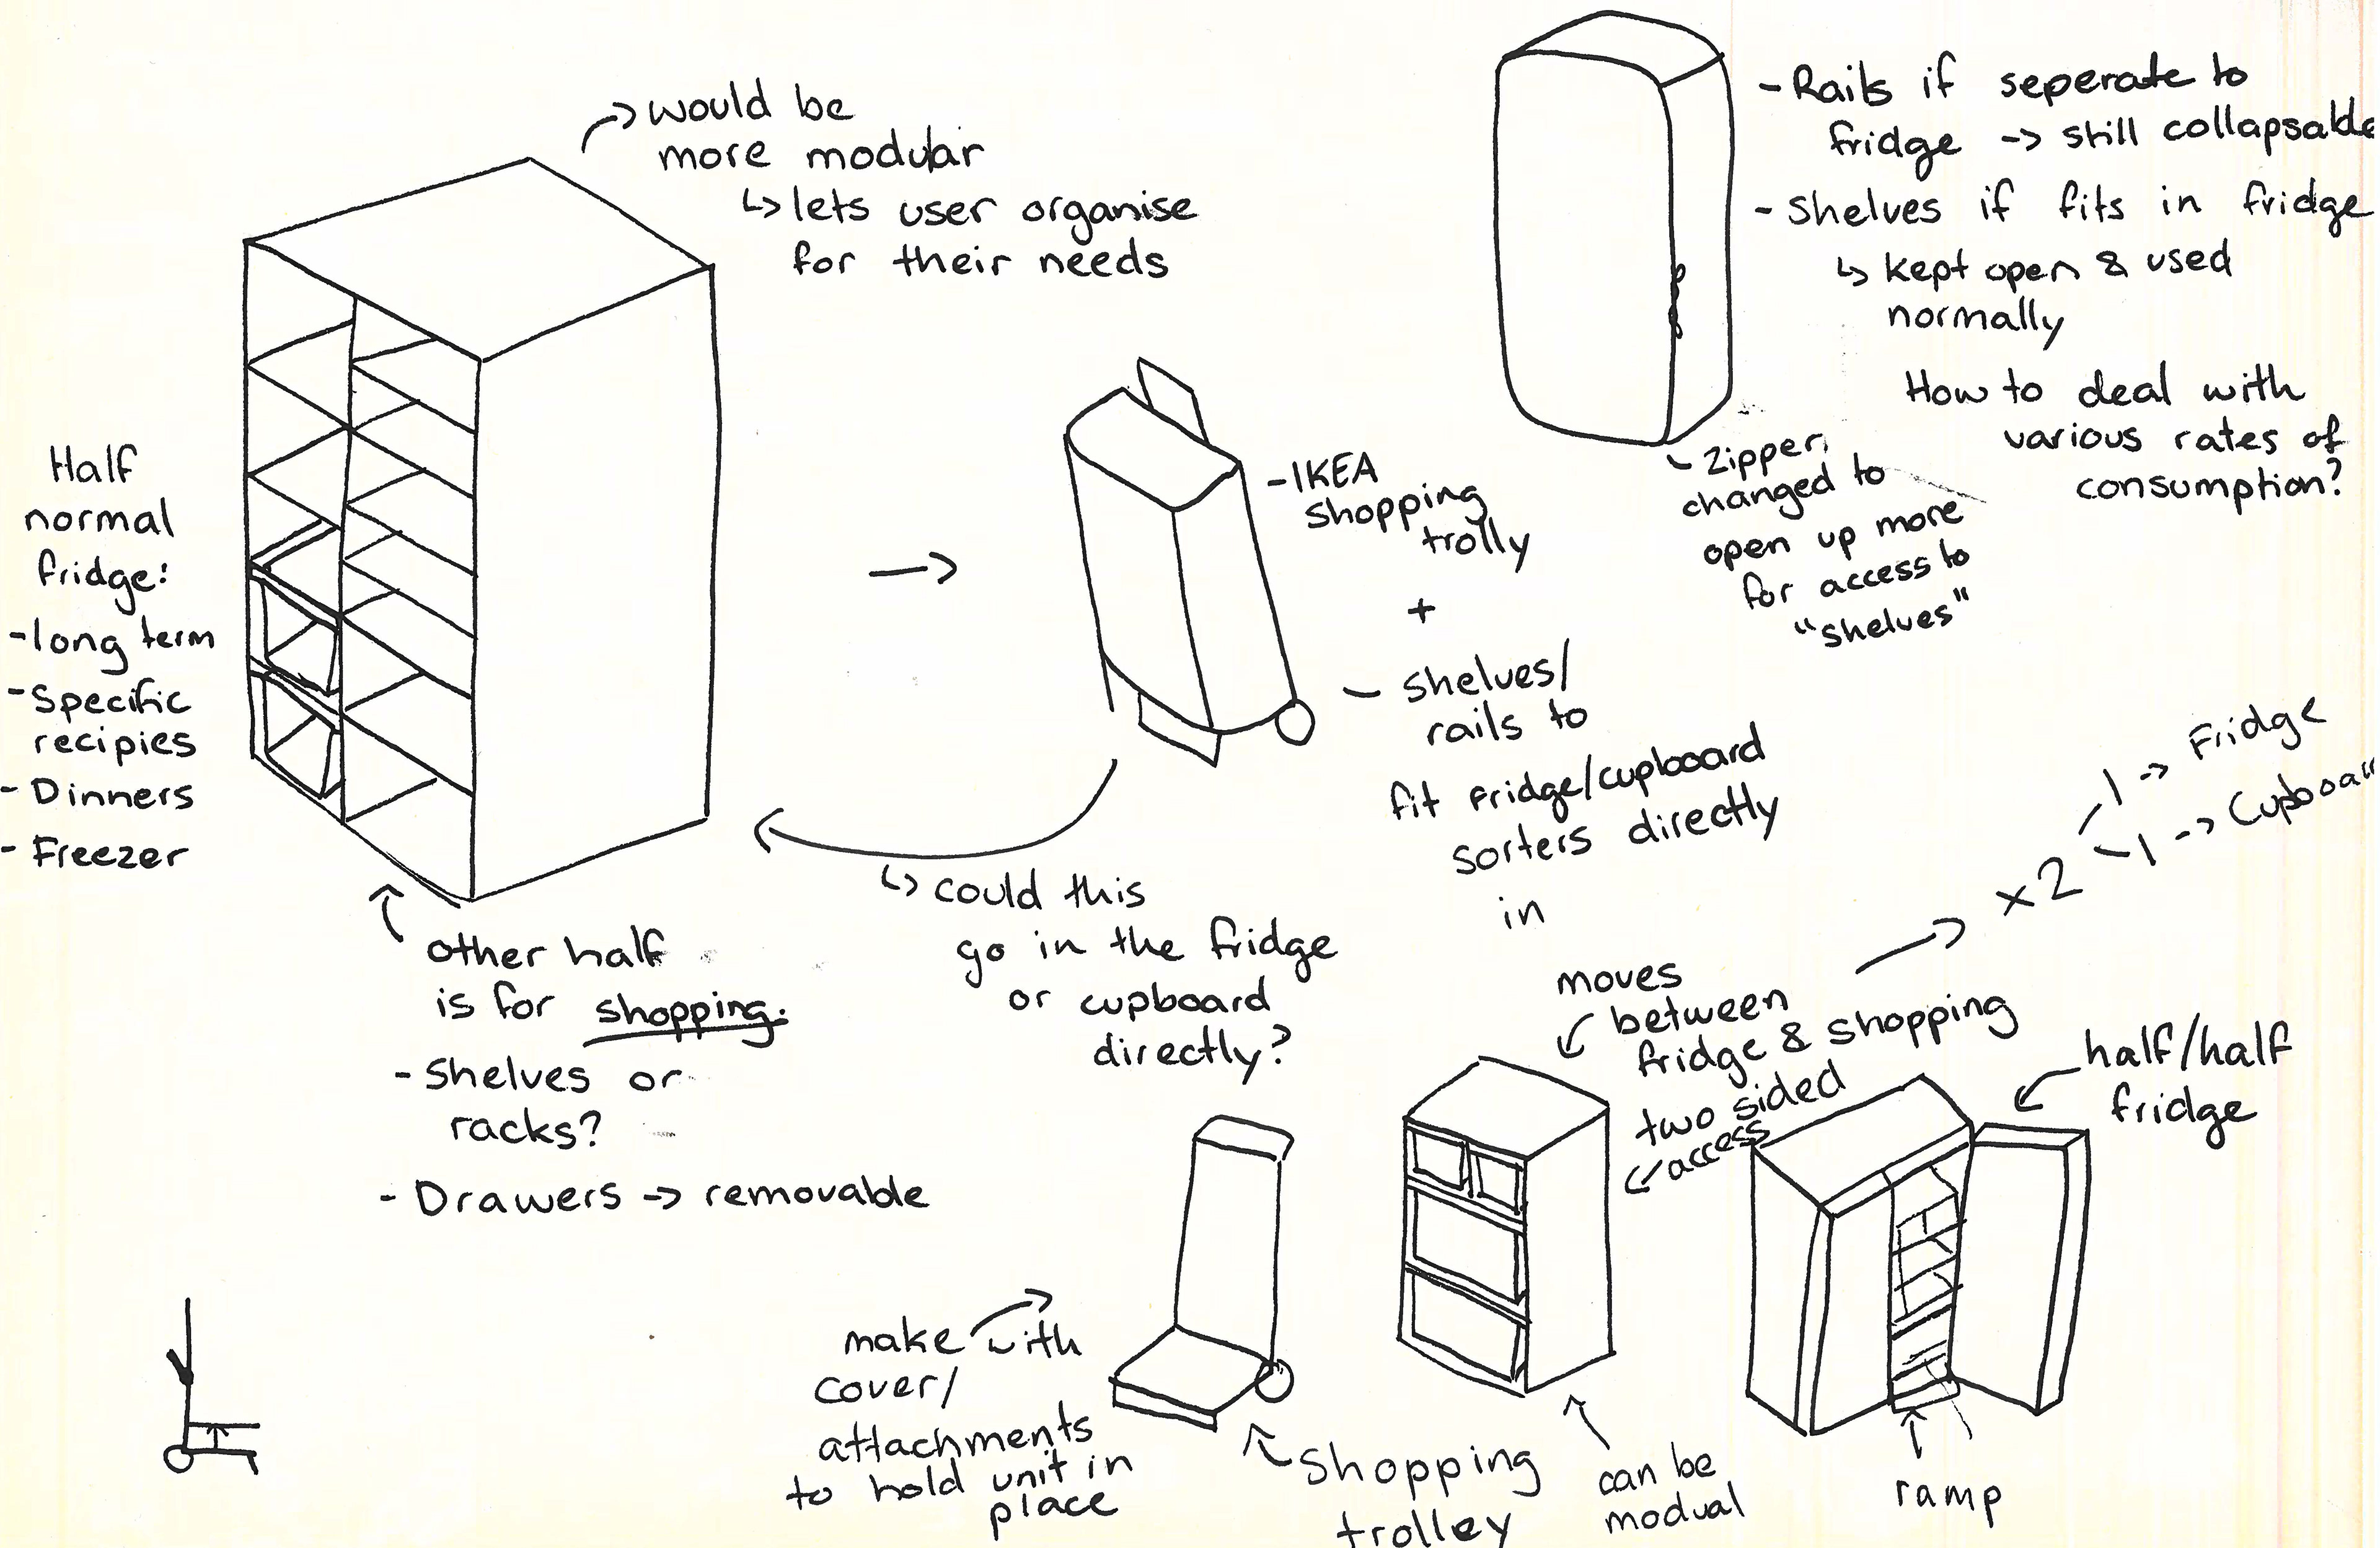 would be
more modular
↳ lets user organise
for their needs
Half
normal
fridge:
- long term
- Specific
recipies
- Dinners
- Freezer
other half
is for shopping.
- Shelves or
racks?
- Drawers -> removable
- IKEA
Shopping
trolly
+
- Shelves/
rails to
fit fridge/cupboard
sorters directly
in
↳ could this
go in the fridge
or cupboard
directly?
- Rails if seperate to
fridge -> still collapsable
- Shelves if fits in fridge
↳ kept open & used
normally
How to deal with
various rates of
consumption?
- Zipper
changed to
open up more
for access to
"shelves"
x2
1 -> Fridge
1 -> Cupboar
moves
between
fridge & shopping
two sided
access
half/half
fridge
make with
cover/
attachments
to hold unit in
place
Shopping
trolley
can be
modual
ramp